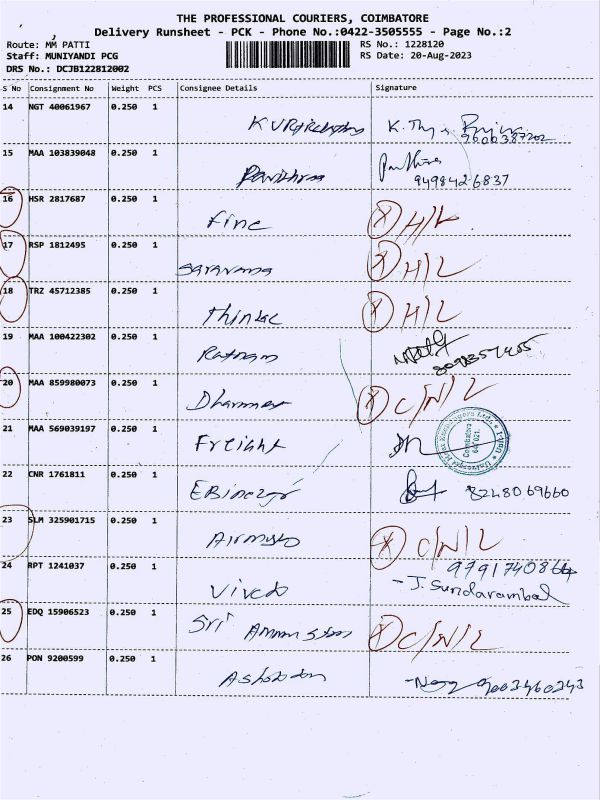 THE PROFESSIONAL COURIERS, COIMBATORE
Delivery Runsheet - PCK - Phone No.:0422-3505555 - Page No.:2
Route: MM PATTI
Staff: MUNIYANDI PCG
DRS No.: DCJB122812002
RS No.: 1228120
RS Date: 20-Aug-2023
S No Consignment No Weight PCS Consignee Details Signature
14 NGT 40061967 0.250 1
K. 
15 MAA 103839048 0.250 1 Pavithra
9498426837
16 HSR 2817687 0.250 1 Fine X H/L
17 RSP 1812495 0.250 1 Saravana X H/L
18 TRZ 45712385 0.250 1 Thinkc X H/L
19 MAA 100422302 0.250 1 Ratnam
20 MAA 859980073 0.250 1 X C/N/L
21 MAA 569039197 0.250 1 Freight
Coimbatore
641 021.
22 CNR 1761811 0.250 1 8248069660
23 SLM 325901715 0.250 1 X C/N/L
24 RPT 1241037 0.250 1 Vivek
- J. Sundarambal
25 EDQ 15906523 0.250 1 Sri X C/N/L
26 PON 9200599 0.250 1 9003460343